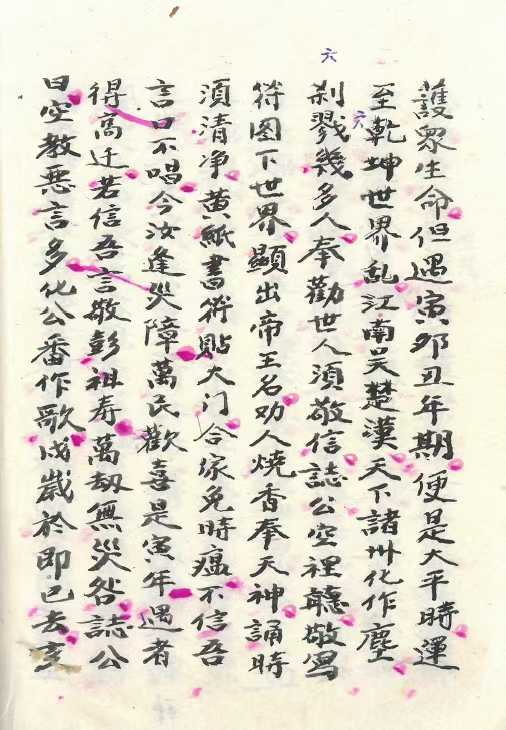 六
護眾生命但遇寅卯丑年期便是大平時運
至乾坤世界乱江南吴楚漢天下諸州化作塵
六
刹戮幾多人奉勸世人須敬信誌公空裡聽敬寫
符图下世界顯出帝王名劝人燒香奉天神誦時
須清净黄紙書符貼大门合家免時瘟不信吾
言口不唱今汝逢災障萬民歡喜是寅年遇者
得高迁若信吾言敬彭祖寿萬劫無災咎誌公
曰空教惡言多化公番作歌戊歲於即已去